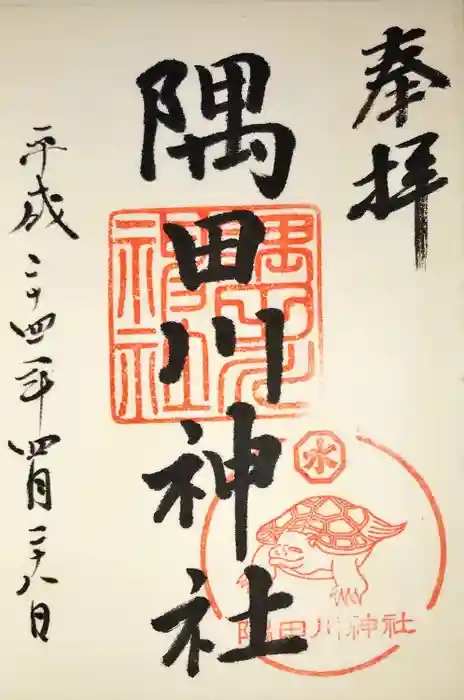 奉拝
隅田川神社
平成二十四年四月二十八日
水
隅田川神社